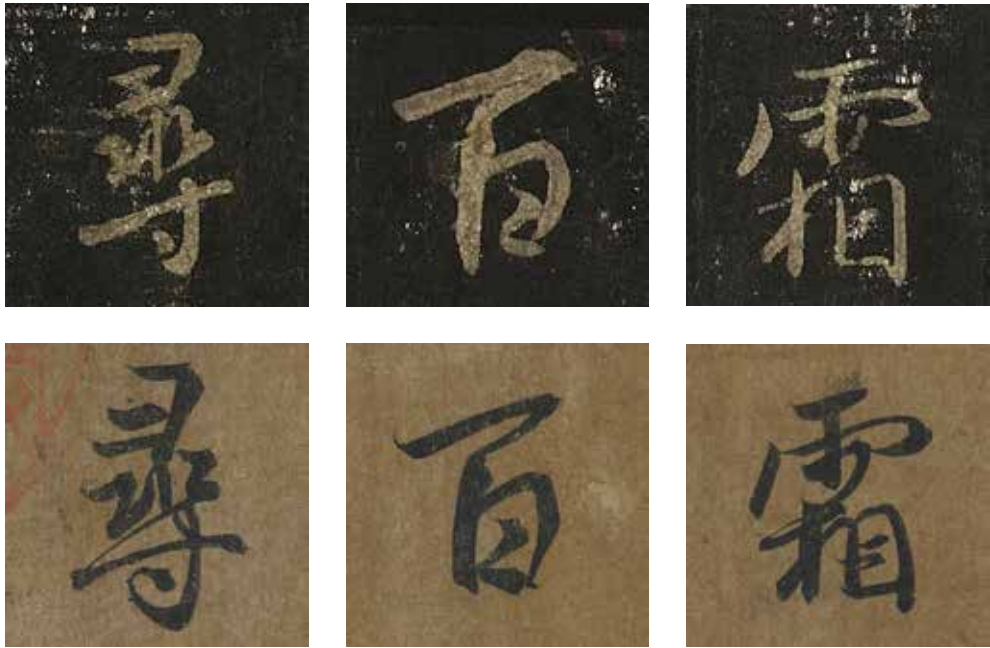 尋百霜
尋百霜